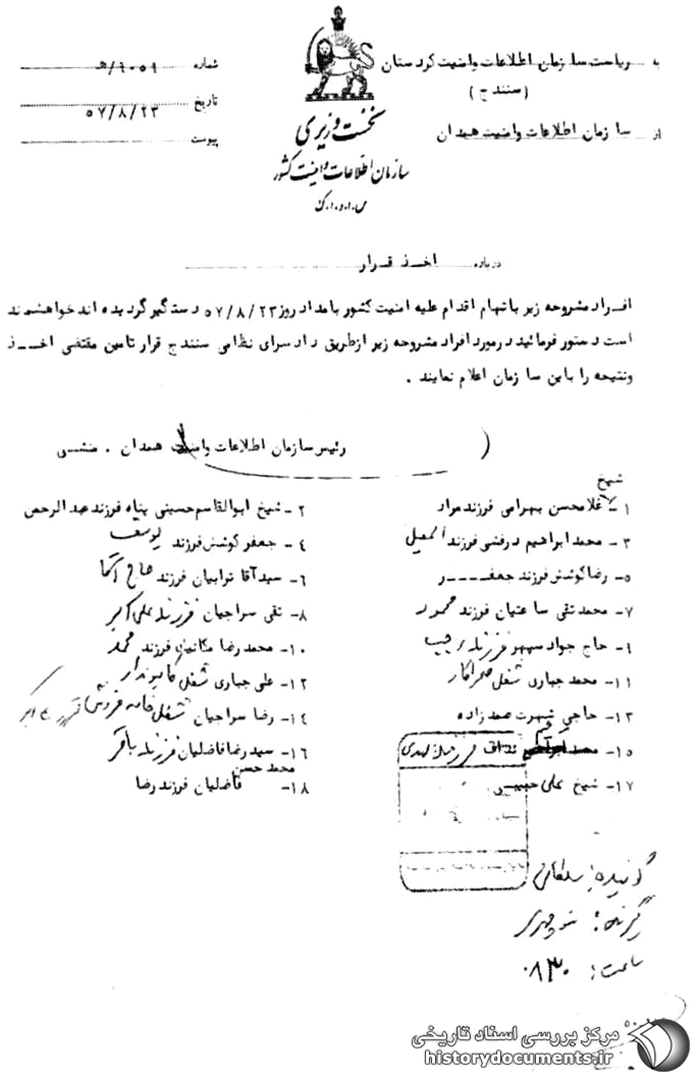 به ریاست سازمان اطلاعات و امنیت کردستان
(سنندج)
از سازمان اطلاعات و امنیت همدان
نخست وزیری
سازمان اطلاعات و امنیت کشور
س.ا.و.ا.ک
شماره ۶۰۵۹/هـ
تاریخ ۵۷/۸/۲۳
پیوست
درباره اخذ قرار
افراد مشروحه زیر با تهام اقدام علیه امنیت کشور بامداد روز ۵۷/۸/۲۳ دستگیر گردیده اند خواهشمند
است دستور فرمائید در مورد افراد مشروحه زیر از طریق دادسرای نظامی سنندج قرار تامین مقتضی اخذ
و نتیجه را باین سازمان اعلام نمایند .
رئیس سازمان اطلاعات و امنیت همدان . منشی
شیخ
۱- غلامحسن بهرامی فرزند مراد
۲- شیخ ابوالقاسم حسینی پناه فرزند عبدالرحمن
۳- محمد ابراهیم درفشی فرزند اسمعیل
۴- جعفر کوشش فرزند یوسف
۵- رضا کوشش فرزند جعفر
۶- سید آقا ترابیان فرزند حاج آقا
۷- محمد تقی ساعتیان فرزند محمود
۸- تقی سراجیان فرزند علی اکبر
۹- حاج جواد سپهر فرزند رجب
۱۰- محمد رضا مکانیان فرزند محمد
۱۱- محمد جباری شغل
۱۲- علی جباری شغل
۱۳- حاجی شهرت صمدزاده
۱۴- رضا سراجیان شغل
۱۵- محمد فرزند مهدی
۱۶- سید رضا فاضلیان فرزند باقر
۱۷- شیخ علی حبیبی
محمد حسن
۱۸- فاضلیان فرزند رضا
گوینده: سلطانی
گیرنده: منوچهری
ساعت: ۰۸۳۰
مرکز بررسی اسناد تاریخی
historydocuments.ir